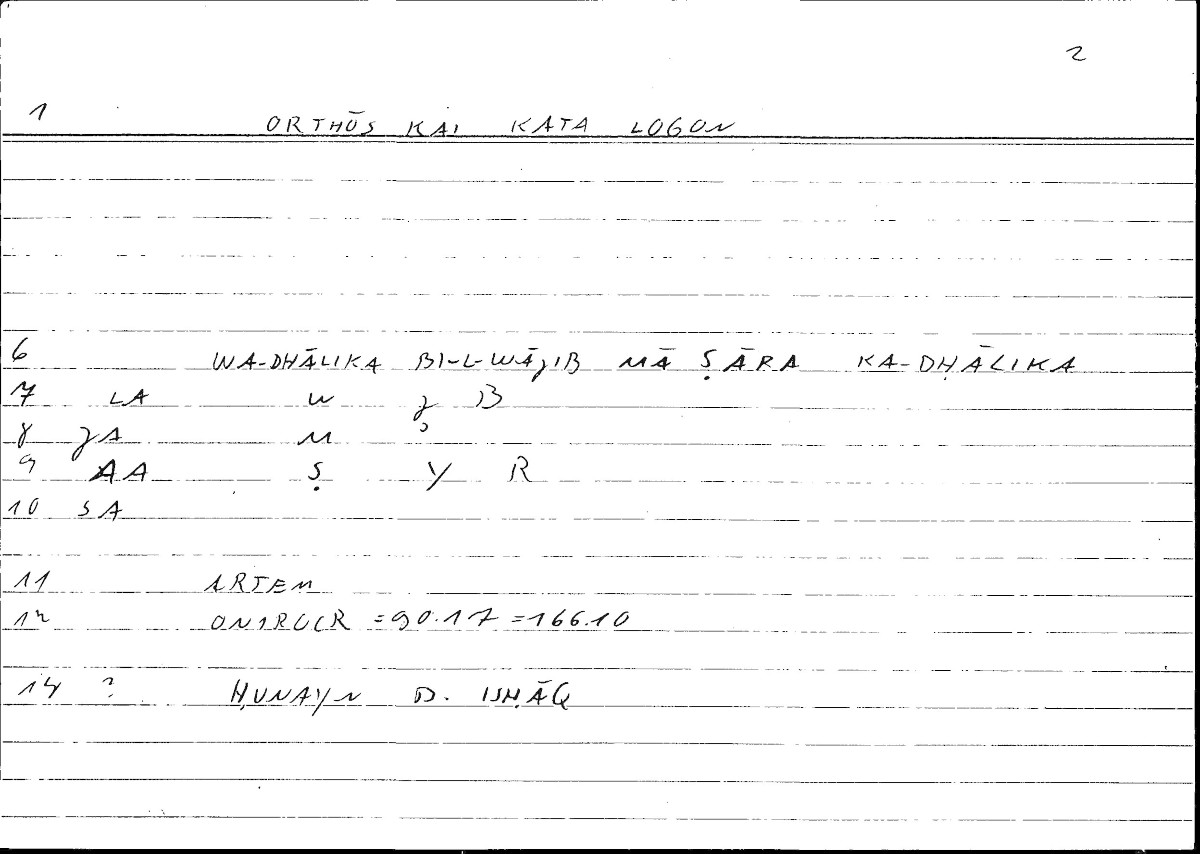 2
1 ORTHŌS KAI KATA LOGON
6 WA-DHĀLIKA BI-L-WĀJIB MĀ ṢĀRA KA-DHĀLIKA
7 LA W J B
8 JA M
9 AA Ṣ Y R
10 SA
11 ARTEM
12 ONIROCR =90.17 =166.10
14 ? ḤUNAYN B. ISḤĀQ